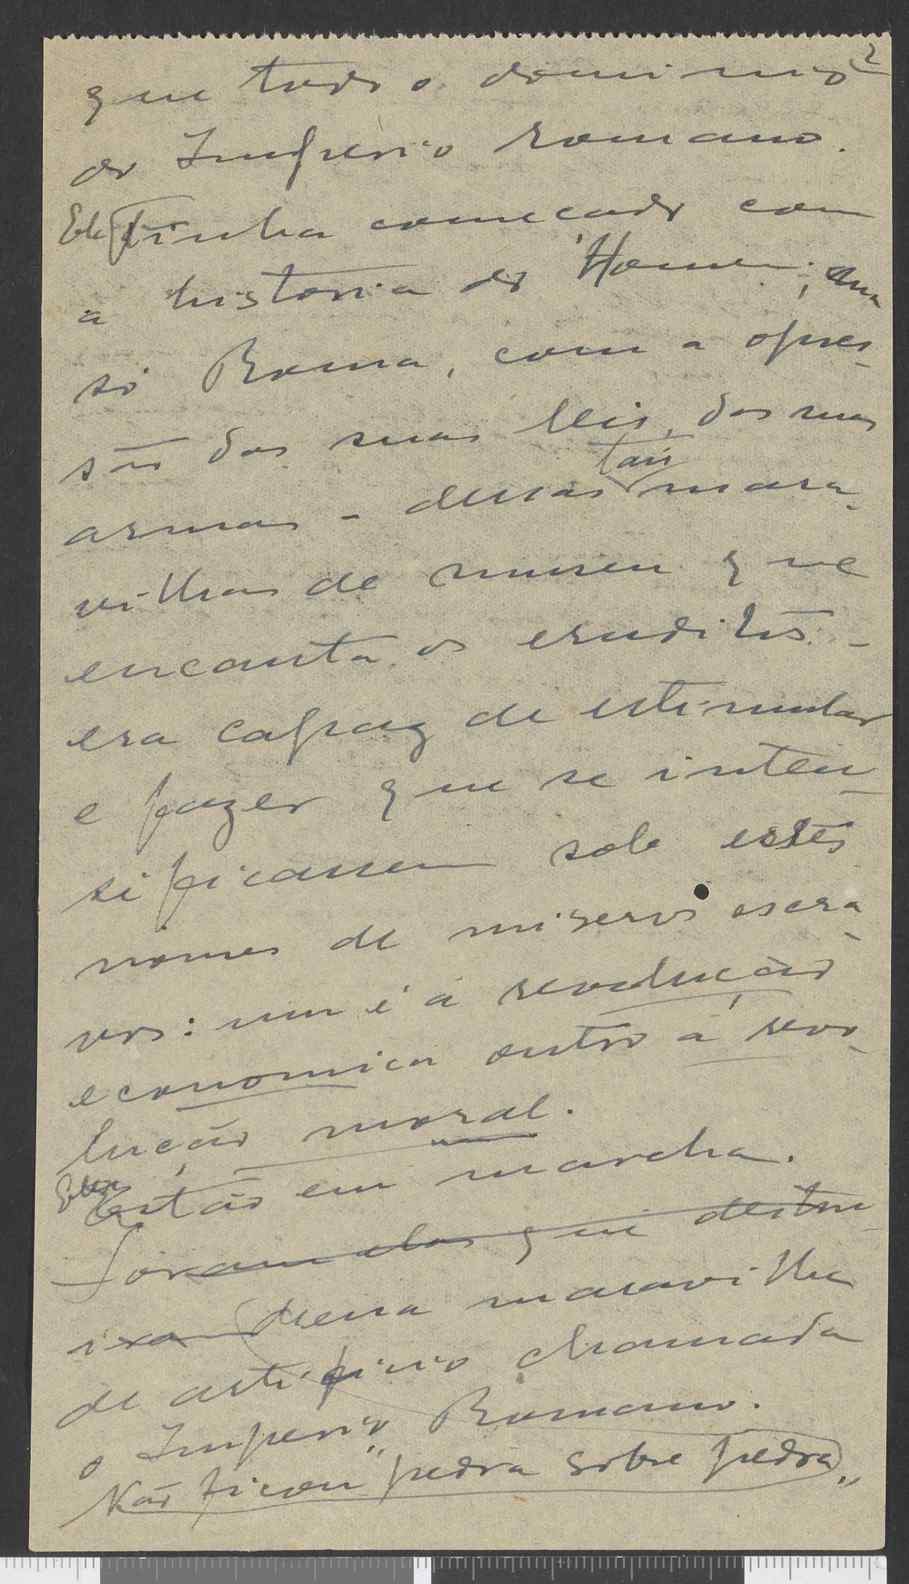 2
que todo o dominio
do Imperio romano.
Ele tinha começado com
a historia do Homem; mas
só Roma, com a opres-
são das suas leis, das suas
armas - dessas tais mara-
vilhas de museu que
encanta os eruditos -
era capaz de estimular
e fazer que se inten-
sificassem sob estes
nomes de miseros escra-
vos: um é a revolução
economica outro a revo-
lução moral.
Estão em marcha.
Foram elas que destru-
iram dessa maravilha
de artificio chamada
o Imperio Romano.
Não ficou "pedra sobre pedra"